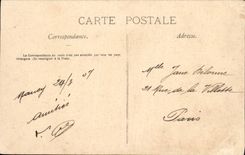 CARTE POSTALE
Correspondance.
Adresse.
La Correspondance au verso n'est pas acceptée par tous les pays
étrangers (Se renseigner à la Poste).
Nancy 24/3 07
Amitiés
Mlle Jane
21 Rue de la Villette
Paris